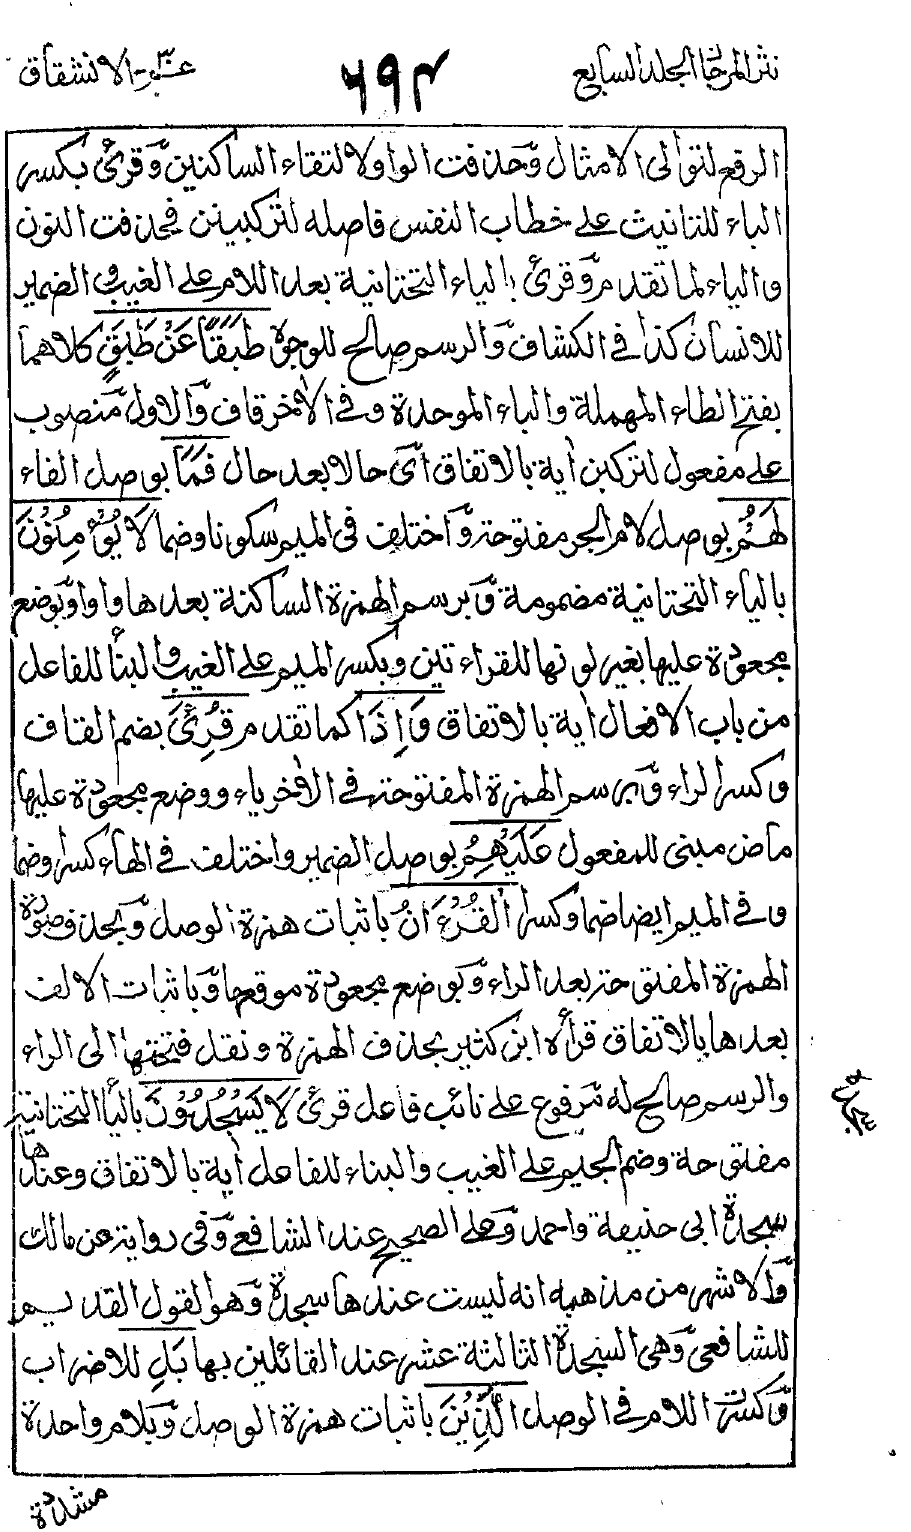 نثر المرجان الجلد السابع
٦٩٣
عمّ - الانشقاق
الرفع لتوالى الامثال وّحذفت الواو لالتقاء الساكنين وّقرئ بكسر
الباء للتانيث على خطاب النفس فاصله لتركبينن فحذفت النون
والياء لما تقدم وّقرئ بالياء التحتانية بعد اللام على الغيب و الضمير
للانسان كذا فى الكشاف وّالرسم صالح للوجوه طَبَقًا عَنْ طَبَقٍ كلاهما
بفتح الطاء المهملة والباء الموحدة وفى الأخر قاف وّالاول مّنصوب
على مفعول لتركبن أية بالاتفاق اى حالا بعد حال فَمَا بوصل الفاء
لَهُمْ بوصل لام الجر مفتوحة وّاختلف فى الميم سكونا وضما لَا يُؤْمِنُوْنَ
بالياء التحتانية مضمومة وّبرسم الهمزة الساكنة بعدها واوا وّبوضع
مجعودة عليها بغير لونها للقراءتين وبكسر الميم على الغيب والبنأ للفاعل
من باب الافعال أية بالاتفاق وَاِذَا كما تقدم قُرِئَ بضم القاف
وكسر الراء وّبرسم الهمزة المفتوحة فى الأخر ياء ووضع مجعودة عليها
ماض مبنى للمفعول عَلَيْهِمُ بوصل الضمير واختلف فى الهاء كسرا وضما
وفى الميم ايضا ضما وكسرا الْقُرْءَانُ باثبات همزة الوصل وّبحذف صورة
الهمزة المفتوحة بعد الراء وّبوضع مجعودة موقعها وّباثبات الالف
بعدها بالاتفاق قرأه ابن كثير بحذف الهمزة ونقل فتحتها الى الراء
والرسم صالح له مّرفوع على نائب فاعل قرئ لَا يَسْجُدُوْنَ باليأ التحتانية
مفتوحة وضم الجيم على الغيب والبناء للفاعل أية بالاتفاق وعندها
سجدة ابى حنيفة واحمد وّعلى الصحيح عند الشافعى وّفى رواية عن مالك
وّالاشهر من مذهبه انه ليست عندها سجدة وّهو القول القديم
للشافعى وّهى السجدة الثالثة عشر عند القائلين بها بَلِ للاضراب
وّكسرت اللام فى الوصل الَّذِيْنَ باثبات همزة الوصل وّبلام واحدة
سجدة
مشددة